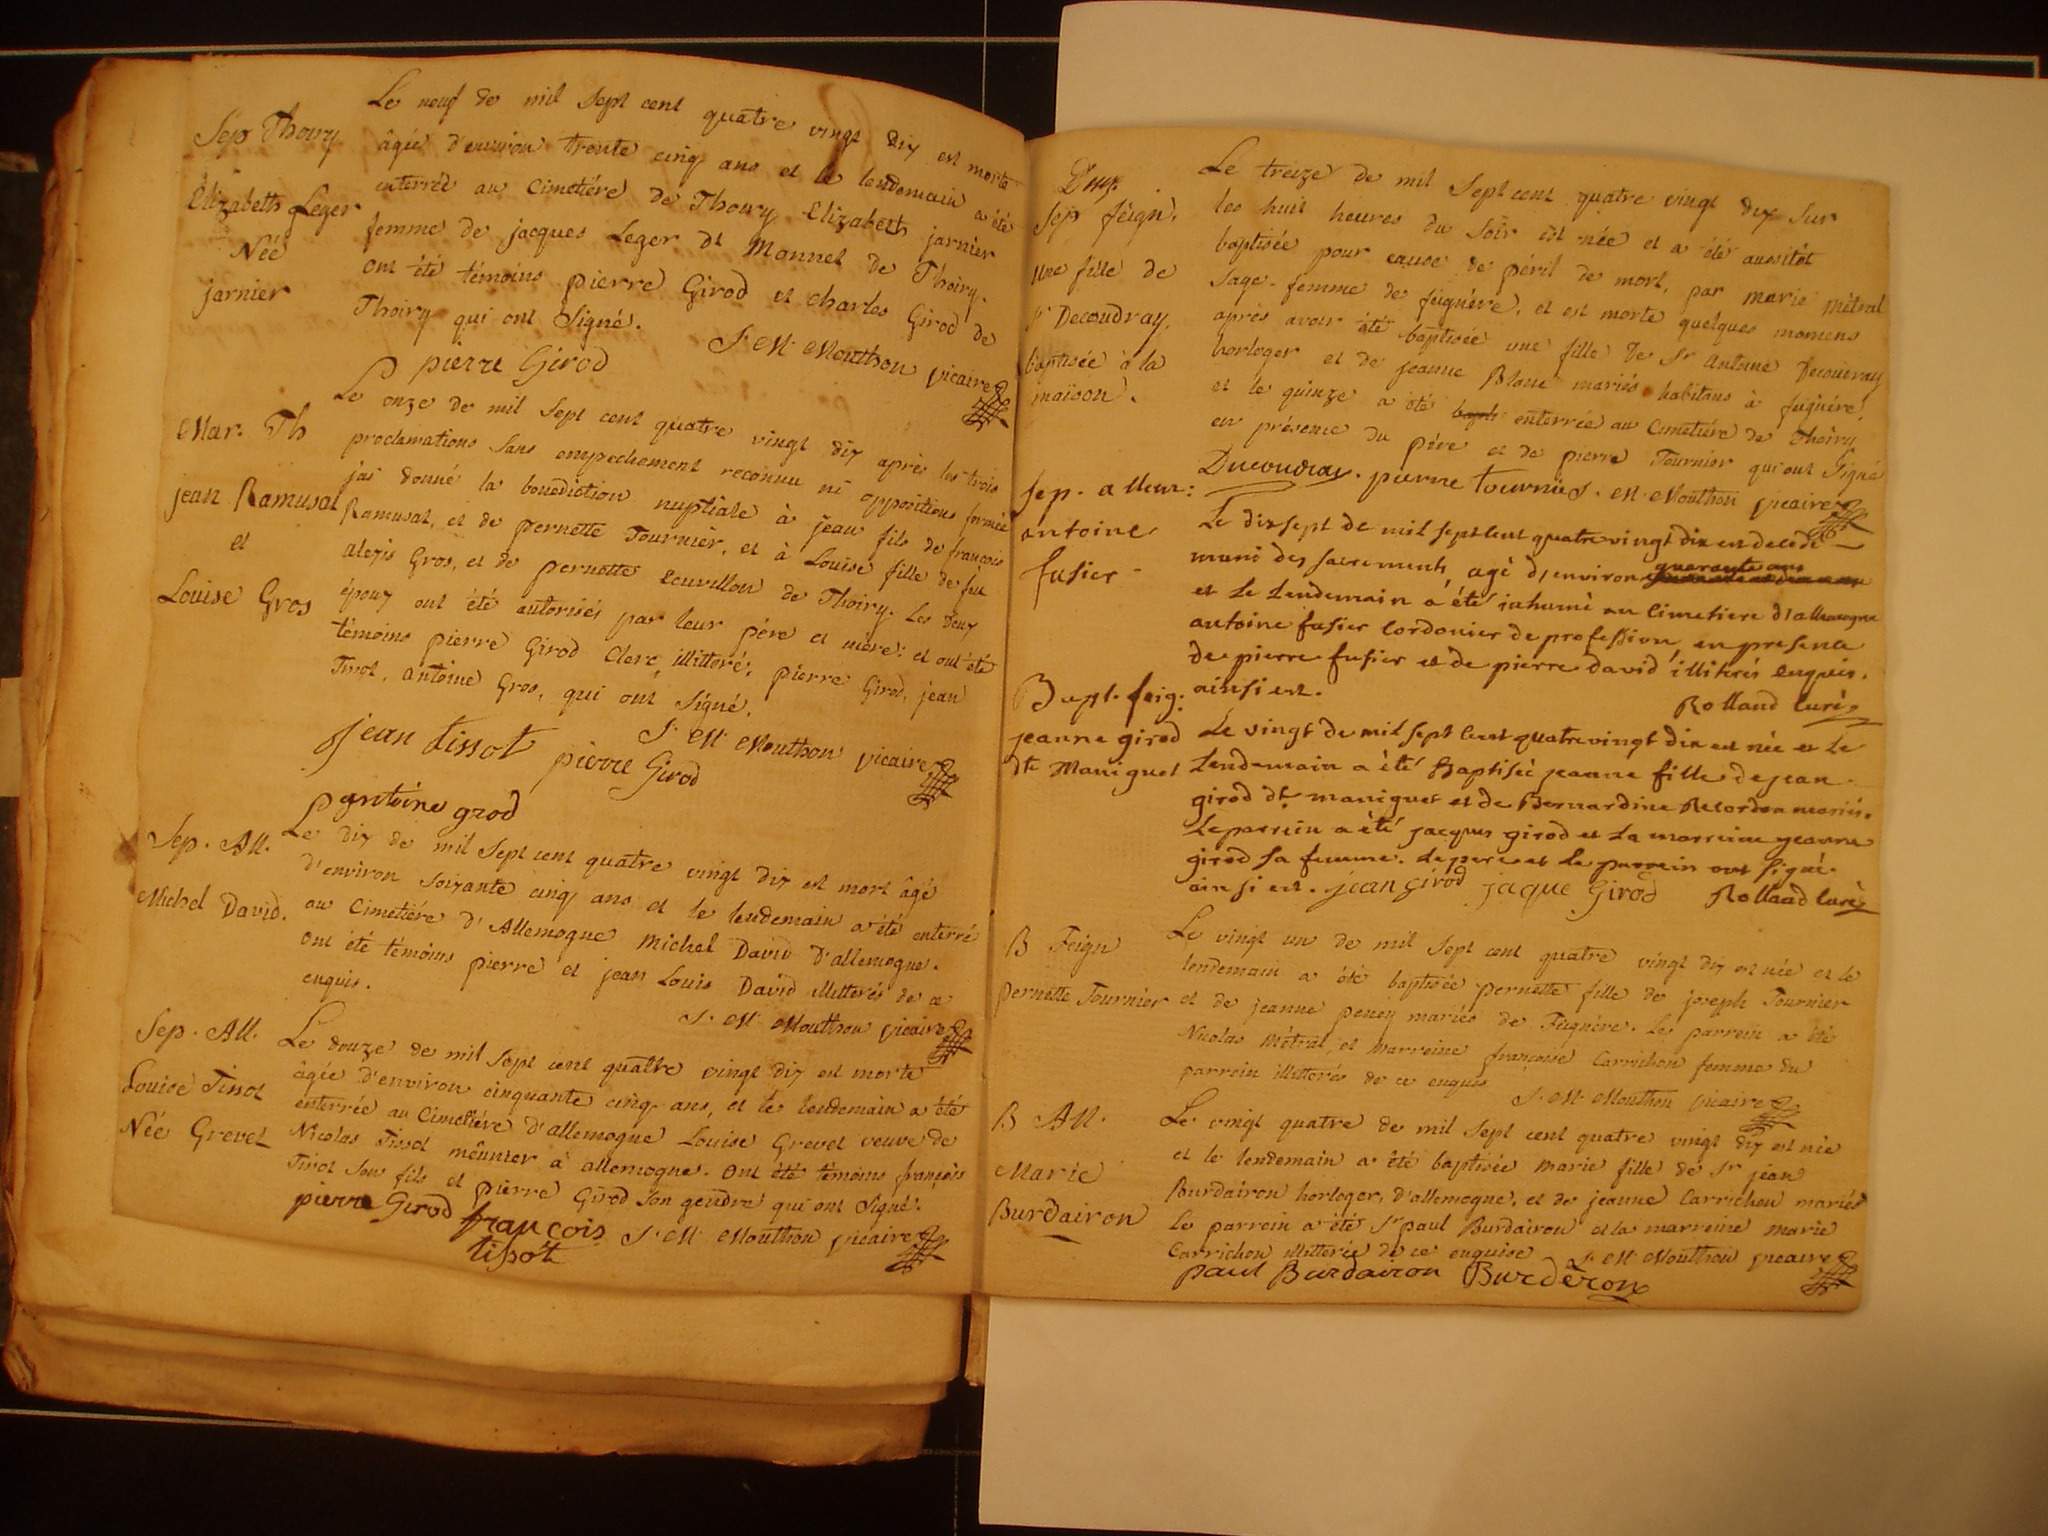 Sep Thoiry
Elizabeth Leger
Née
jarnier
Le neuf de mil sept cent quatre vingt dix est morte
âgée d'environ trente cinq ans et le lendemain a été
enterrée au Cimetiére de Thoiry Elizabeth jarnier
femme de jacques Leger dt Monnet de Thoiry.
ont été témoins pierre Girod et charles Girod de
Thoiry qui ont Signé.
J. M. Mouthon vicaire
p pierre Girod
Mar. Th
jean Ramusat
et
Louise Gros
Le onze de mil sept cent quatre vingt dix après les trois
proclamations sans empechement reconnu ni oppositions formée
jai donné la benediction nuptiale à jean fils de francois
Ramusat, et de pernette Tournier, et à Louise fille de feu
alexis Gros, et de pernette ecuvillon de Thoiry. Les deux
époux ont été autorisés par leur pére et mére: et ont été
témoins pierre Girod Clerc, illitteré, pierre Girod, jean
Tisot, antoine Gros, qui ont Signé.
J. M. Mouthon vicaire
jean tissot pierre Girod
p antoine grod
Sep. All.
Michel David.
Le dix de mil sept cent quatre vingt dix est mort âgé
d'environ soixante cinq ans et le lendemain a été enterré
au Cimetiére d'Allemogne Michel David d'allemogne.
ont été témoins pierre et jean Louis David illitterés de ce
enquis.
J. M. Mouthon vicaire
Sep. All.
Louise Tissot
Née Grevet
Le douze de mil sept cent quatre vingt dix est morte
âgée d'environ cinquante cinq ans, et le lendemain a été
enterrée au Cimetiére d'allemogne Louise Grevet veuve de
Nicolas Tissot meûnier à allemogne. ont été témoins françois
Tisot son fils et pierre Girod son gendre qui ont signé.
pierre Girod françois J. M. Mouthon vicaire
tissot
Sep feign.
une fille de
Sr Decoudray.
baptisée à la
maison.
Le treize de mil sept cent quatre vingt dix sur
les huit heures du soir est née et a été aussitôt
baptisée pour cause de péril de mort, par marie Métral
sage-femme de feiguére, et est morte quelques momens
aprés avoir été baptisée une fille de Sr Antoine Decoudray
horloger et de jeanne Blanc mariés habitans à feiguére,
et le quinze a été enterrée au Cimetiére de Thoiry
en présence du pére et de pierre Tournier qui ont signé
Ducoudray. pierre tournier J. M. Mouthon vicaire
Sep. allem:
antoine
fusier
Le dixsept de mil sept cent quatre vingt dix est decedé
muni des sacrements, agé d'environ quarante ans
et le lendemain a été inhumé au cimetiere d'allemogne
antoine fusier cordonier de profession, en presence
de pierre fusier et de pierre david illiterés enquis.
ainsi est.
Rolland curé
Bapt. feig.
jeanne girod
dte Maniguet
Le vingt de mil sept cent quatre vingt dix est née et le
lendemain a été Baptisée jeanne fille de jean
girod dt maniguet et de Bernardine Recordon mariés.
Le parrein a été jacques girod et la marreine jeanne
girod sa femme. Le pere et le parrein ont signé.
ainsi est. jean girod jaque Girod Rolland curé
B Feign
pernette Tournier
Le vingt un de mil sept cent quatre vingt dix est née et le
lendemain a été baptisée pernette fille de joseph Tournier
et de jeanne peney mariés de Feiguére. Le parrein a été
Nicolas Métral, et marreine françoise Carrichon femme du
parrein illitterés de ce enquis
J. M. Mouthon vicaire
B All.
Marie
Burdairon
Le vingt quatre de mil sept cent quatre vingt dix est née
et le lendemain a été baptisée marie fille de Sr jean
Burdairon horloger, d'allemogne, et de jeanne Carrichon mariés
Le parrein a été Sr paul Burdairon et la marreine marie
Carrichon illitterée de ce enquise J. M. Mouthon vicaire
paul Burdairon Burdéron